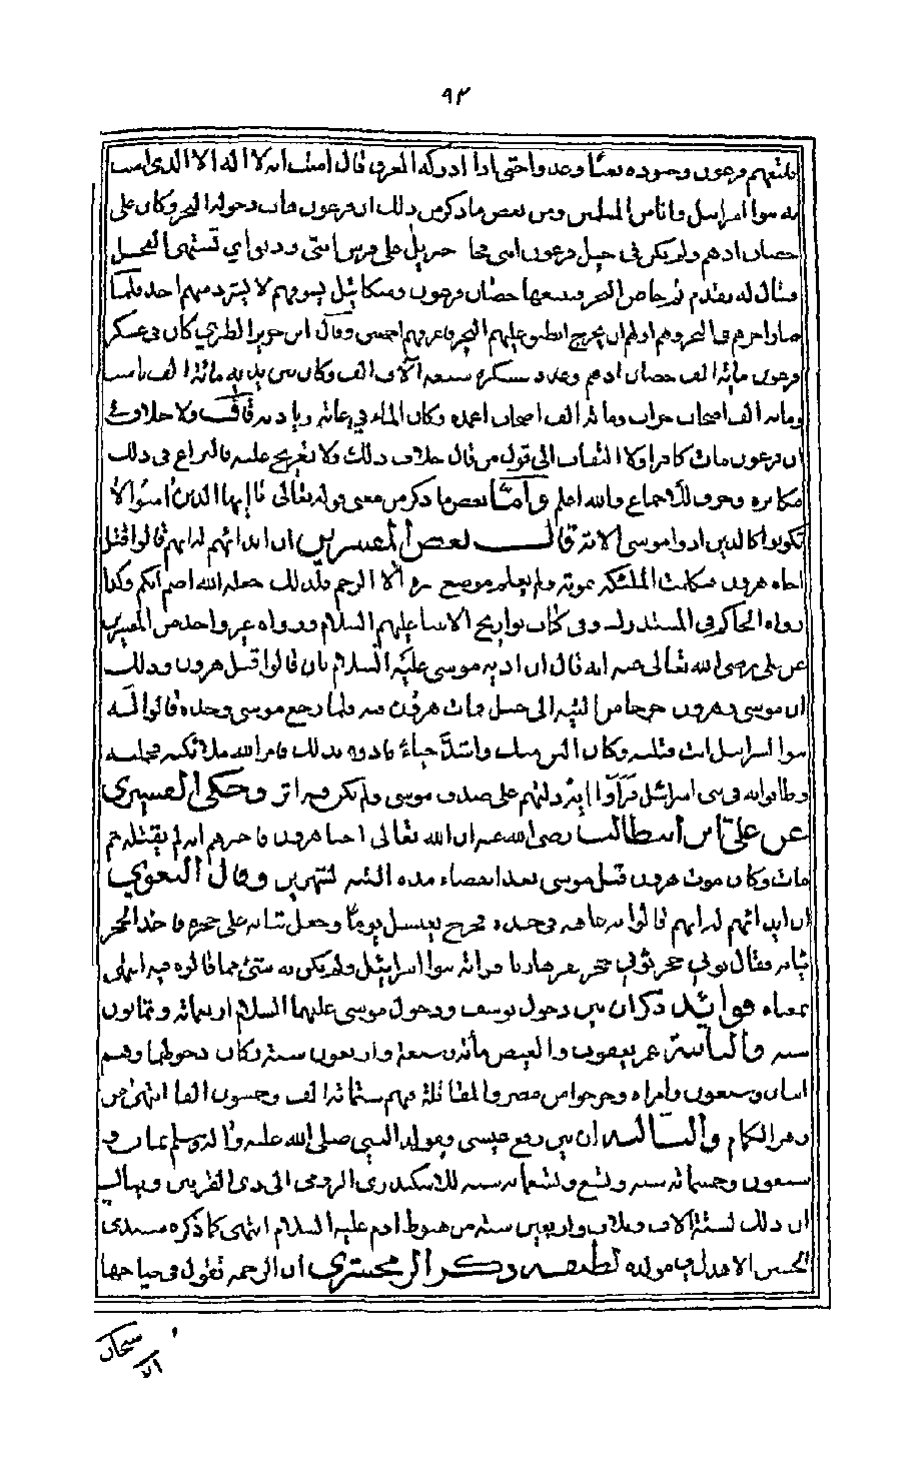 ٩٣
فاتبعهم فرعون وجنوده بغيا وعدوا حتى اذا ادركه الغرق قال امنت انه لا اله الا الذي امنت
به بنوا اسرائيل وانا من المسلمين ومن بعض ما ذكر من ذلك ان فرعون هاب دخول البحر وكان على
حصان ادهم ولم يكن في خيل فرعون انثى فجا جبريل على فرس انثى وديق اي تشتهي الفحل
فقال له تقدم ثم خاض البحر فتبعها حصان فرعون وميكائيل يسوقهم لا يشرد منهم احد فلما
صار اخرهم في البحر وهم اولهم ان يخرج انطبق عليهم البحر فاغرقهم اجمعين وقال ابن جرير الطبري كان في عسكر
فرعون مائة الف حصان ادهم وعدد عسكره سبعة آلاف الف وكان بين يديه مائة الف ناشب
ومائة الف اصحاب حراب ومائة الف اصحاب اعمده وكان الماء في غاية زيادته قالت ولا خلاف في
ان فرعون مات كافرا ولا التفات الى قول من قال خلاف ذلك ولا تعريج عليه فالنزاع في ذلك
مكابره وخرق للاجماع والله اعلم وأمّا بعض ما ذكر من معنى قوله تعالى يا ايها الذين امنوا لا
تكونوا كالذين اذوا موسى الاية قالــــــت بعض المفسرين ان ايذائهم له انهم قالوا قتل
اخاه هرون فتكلمت الملئكة بموته ولم يعلم موضع قبره الا الرخم فلذلك جعله الله اصم ابكم وكذا
رواه الحاكم في المستدرك وفي كتاب تواريخ الانبيا عليهم السلام ورواه غير واحد من المفسرين
عن علي رضي الله تعالى عنه انه قال ان اذيه موسى عليه السلام بان قالوا قتل هرون وذلك
ان موسى وهرون خرجا من التيه الى جبل فمات هرون فيه فلما رجع موسى وحده قالوا له
بنوا اسرائيل انت قتلته وكان الين منك واشد حياء فاذوه بذلك فامر الله ملائكته فحملته
وطافوا به في بنى اسرائيل فرأوا ان قد دلتهم على صدق موسى ولم يكن فيه اثر وحكى القشيري
عن علي ابن أبي طالب رضي الله عنه ان الله تعالى احيا هرون فاخبرهم انه لم يقتله ثم
مات وكان موت هرون قبل موسى بعد انقضاء مدة التيه لشهرين وقال البغوي
ان ايذائهم له انهم قالوا به عاهه فوحده فخرج يغتسل يوما وجعل ثيابه على حجر فاخذ الحجر
ثيابه فقال ثوبي حجر ثوبي حجر عريانا فراته بنوا اسرائيل ولم يكن به شيء مما قالوه فيه انتهى
بمعناه فوائد ذكر ان بين دخول يوسف ودخول موسى عليهما السلام اربعمائة وثمانون
سنه والثانية عمر يعقوب والعيص مائة سبعة واربعون سنة وكان دخوطها وهم
اثنان وسبعون وامراه وخرجوا من مصر والمقاتلة فيهم ستمائة الف وخمسون الفا انتهى من
زهر الكمام والثالثه ان بين رفع عيسى ومولد النبي صلى الله عليه وآله وسلم ثمان و
سبعون وخمسمائة سنه وتسع وتسعمائه سنه للاسكندرى الرومى الى ذى القرنين ويقال
ان ذلك لستة الاف وثلاث واربعين سنة من هبوط ادم عليه السلام انتهى كما ذكره سيدى
الحسين الاهدل في مولده لطيفه ذكر الزمخشري ان الرحمه تقول في صياحها
سبحان
الا